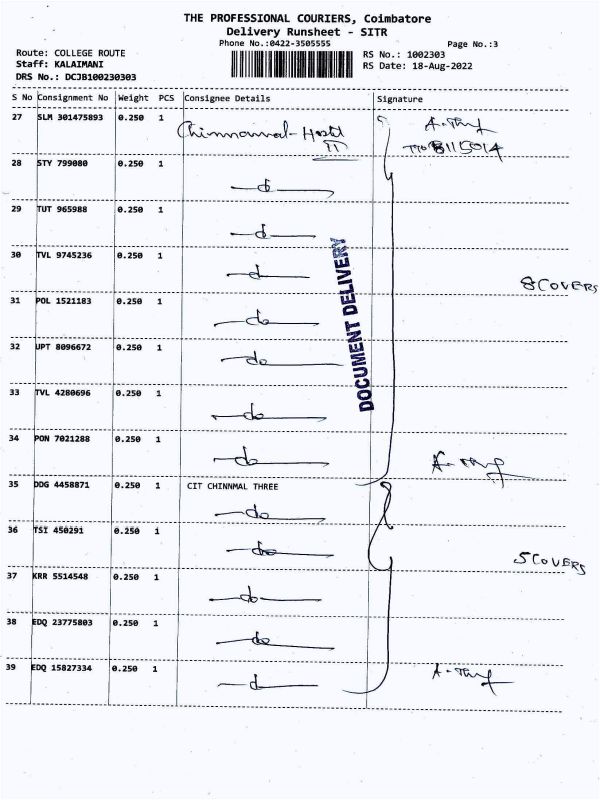 THE PROFESSIONAL COURIERS, Coimbatore
Delivery Runsheet - SITR
Phone No.:0422-3505555 Page No.:3
Route: COLLEGE ROUTE RS No.: 1002303
Staff: KALAIMANI RS Date: 18-Aug-2022
DRS No.: DCJB100230303
S No Consignment No Weight PCS Consignee Details Signature
27 SLM 301475893 0.250 1 Chinnammal-Hostel
28 STY 799080 0.250 1 do
29 TUT 965988 0.250 1 do
30 TVL 9745236 0.250 1 do
8 COVERS
31 POL 1521183 0.250 1 do
DOCUMENT DELIVERY
32 UPT 8096672 0.250 1 do
33 TVL 4280696 0.250 1 do
34 PON 7021288 0.250 1 do
35 DDG 4458871 0.250 1 CIT CHINNMAL THREE
do
36 TSI 450291 0.250 1 do
5 COVERS
37 KRR 5514548 0.250 1 do
38 EDQ 23775803 0.250 1 do
39 EDQ 15827334 0.250 1 do